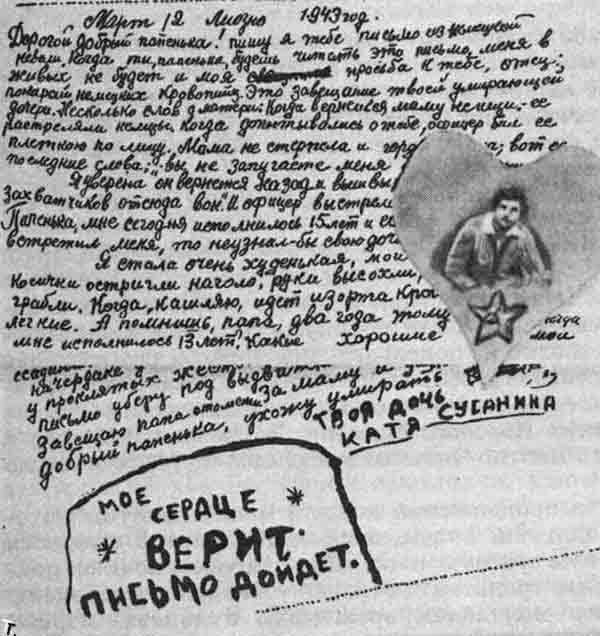 Март 12 Лиозно 1943 год.
Дорогой добрый папенька! пишу я тебе письмо из немецкой
неволи. Когда ты, папенька, будешь читать это письмо, меня в
живых не будет и моя просьба к тебе, отец:
покарай немецких кровопийц. Это завещание твоей умирающей
дочери. Несколько слов о матери. Когда вернешься маму не ищи. ее
растреляли немцы. Когда допытывались о тебе, офицер бил ее
плеткою по лицу. Мама не стерпела и гордо вот ее
последние слова: „вы не запугаете меня
Я уверена он вернется назад и вышвыр
захватчиков отсюда вон. И офицер выстрел
Папенька, мне сегодня исполнилось 15 лет и ес
встретил меня, то неузнал-бы свою доч
Я стала очень худенькая, мои
Косички остригли наголо, руки высохли,
грабли. Когда кашляю, идет изорта кро
легкие. А помнишь, папа, два года тому когда
мне исполнилось 13 лет. Какие хорошие мои
у проклятых
письмо уберу под за маму и
Завещаю папа отомсти
добрый папенька, ухожу умирать
твоя дочь
Катя Сусанина
МОЕ
СЕРДЦЕ
ВЕРИТ.
ПИСЬМО ДОЙДЕТ.